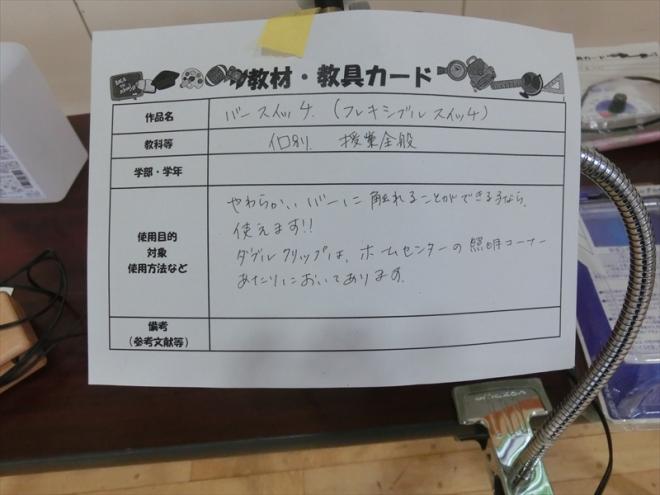 教材・教具カード
作品名 バースイッチ.（フレキシブルスイッチ）
教科等 個別. 授業全般
学部・学年
使用目的
対象
使用方法など
やわらかいバーに触れることができる子なら、
使えます!!
ダブルクリップは、ホームセンターの照明コーナー
あたりにおいてあります.
備考
（参考文献等）